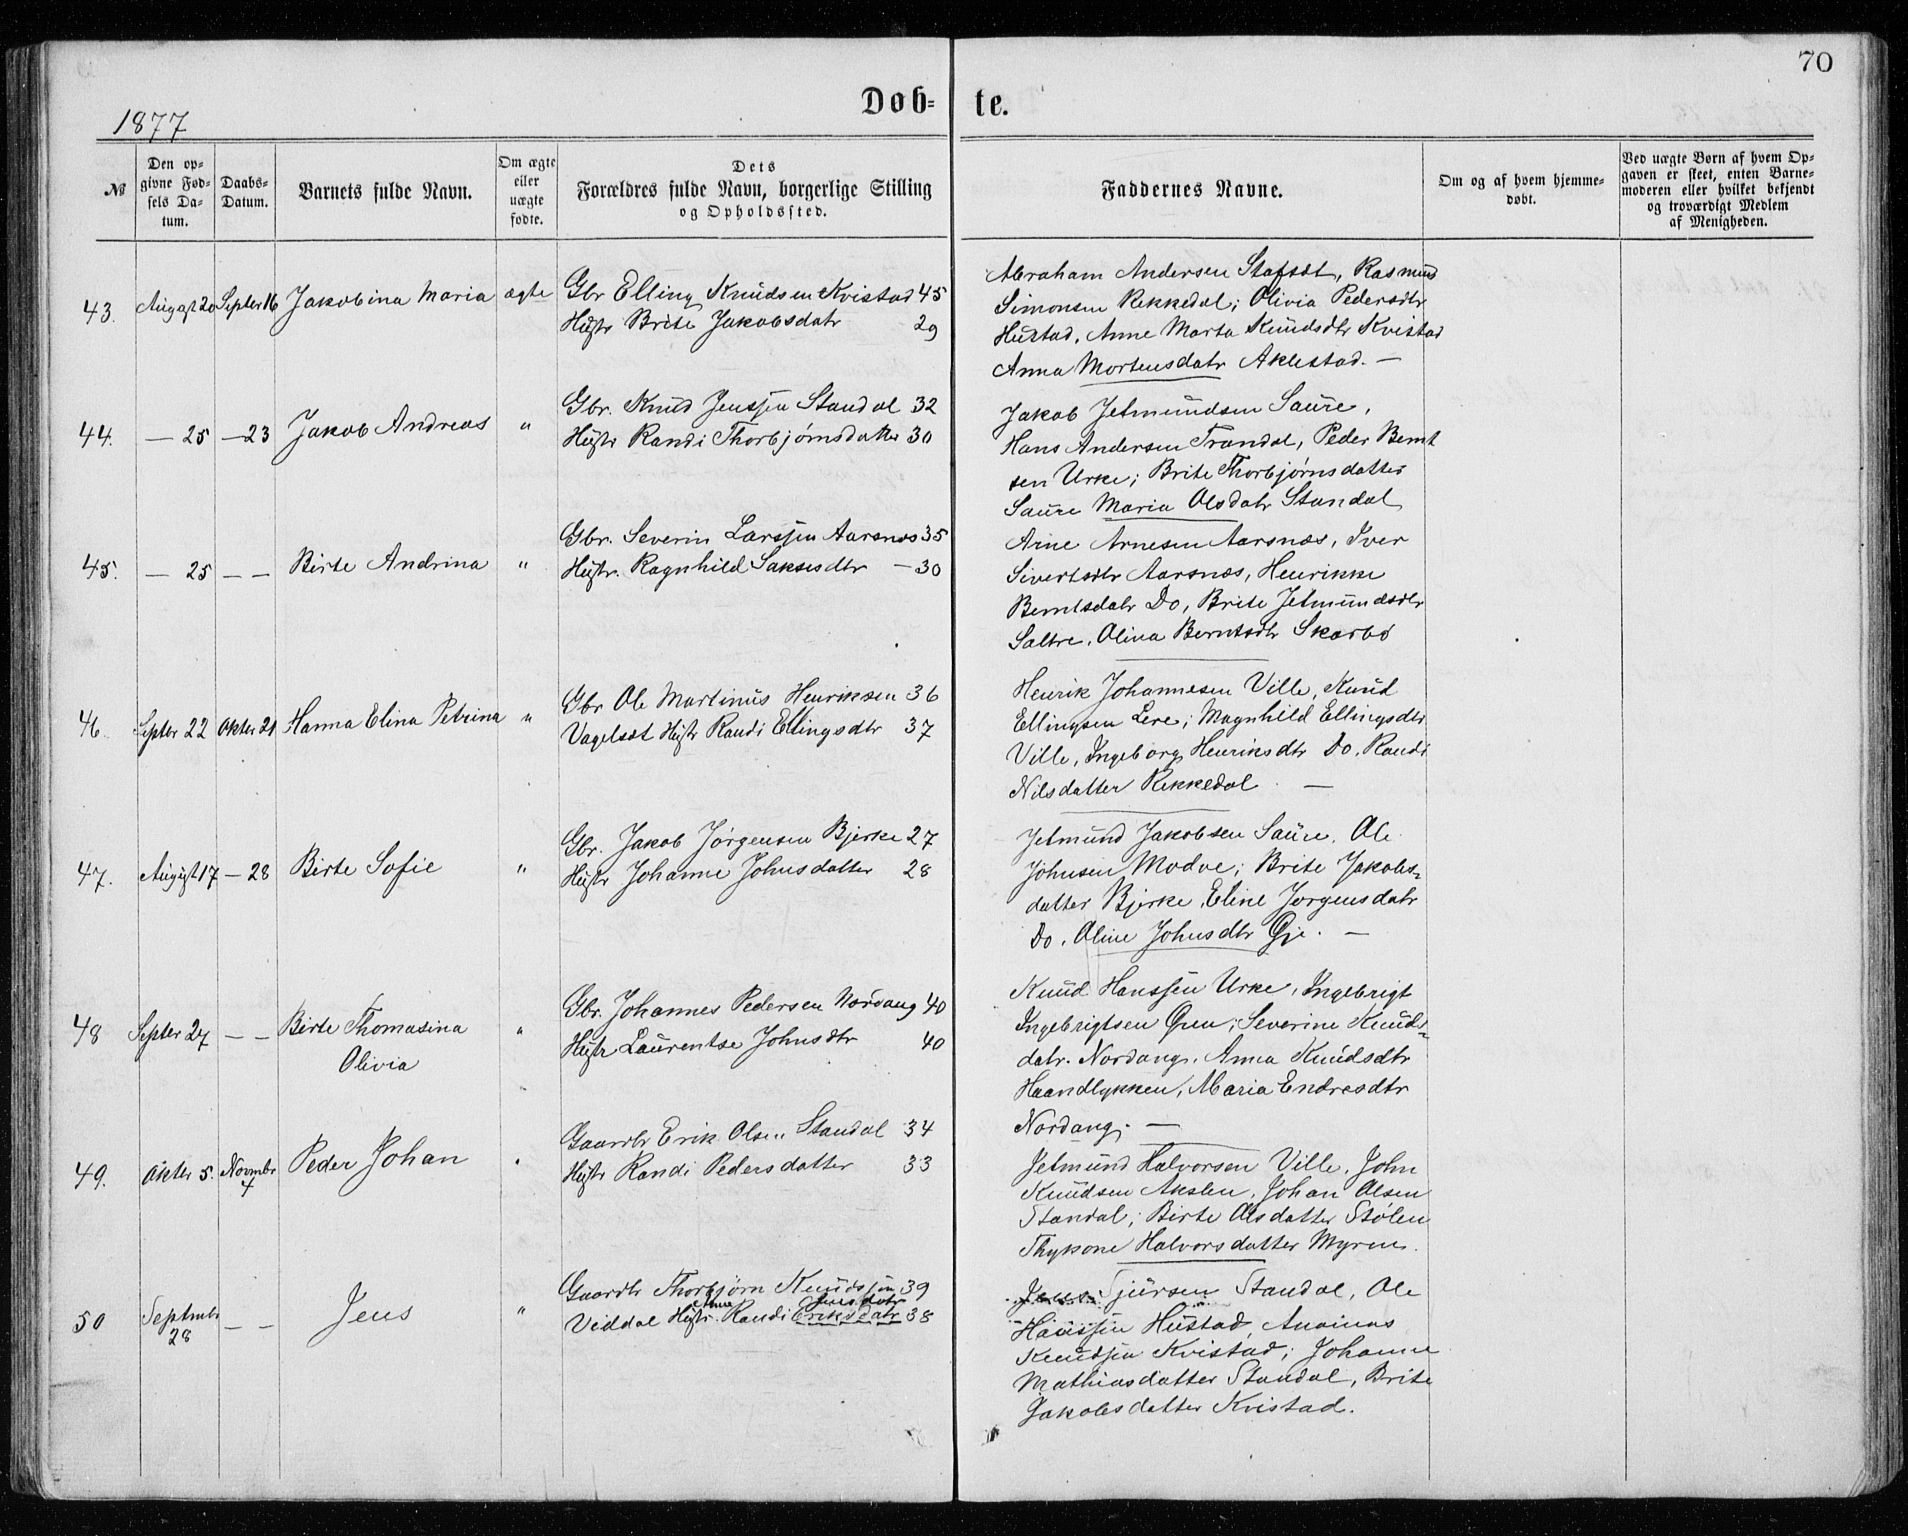 70
Døb-te.
1877
№
Den op-
givne Fød-
sels Da-
tum.
Daabs-
Datum.
Barnets fulde Navn.
Om ægte
eller
uægte
fødte.
Dets
Forældres fulde Navn, borgerlige Stilling
og Opholdssted.
Faddernes Navne.
Om og af hvem hjemme-
døbt.
Ved uægte Børn af hvem Op-
gaven er skeet, enten Barne-
moderen eller hvilket bekjendt
og troværdigt Medlem
af Menigheden.
43. August 20 Septer 16 Jakobina Maria ægte
Gbr Elling Knudsen Kvistad 45
Hustr Brite Jakobsdatr 29
Abraham Andersen Stafsæt, Rasmus
Simonsen Rekkedal; Olivia Pedersdtr
Hustad, Anne Marta Knudsdtr Kvistad
Anna Mortensdatr Aklestad. —
44. — 25 — 23 Jakob Andreas "
Gbr. Knud Jenssen Standal 32
Hustr Randi Thorbjørnsdatter 30
Jakob Jetmundsen Saure,
Hans Andersen Trandal, Peder Bernt
sen Urke; Brite Thorbjørnsdatter
Saure Maria Olsdatr Standal
45. — 25 — — Birte Andrina "
Gbr. Severin Larssen Aarsnæs 35
Hustr. Ragnhild Saksesdtr — 30
Arne Arnesen Aarsnæs, Iver
Sivertsdtr Aarsnæs, Henrikke
Berntsdatr Do, Brite Jetmundsdtr
Saltre, Olina Berntsdtr Skarbø
46. Septer 22 Okter 21 Hanna Elina Petrina "
Gbr Ole Martinus Henriksen 36
Vagelsæt Hustr Randi Ellingsdtr 37
Henrik Johannesen Ville, Knud
Ellingsen Lere; Magnhild Ellingsdtr
Ville, Ingeborg Henriksdtr Do. Randi
Nilsdatter Rekkedal —
47. August 17 — 28 Birte Sofie "
Gbr. Jakob Jørgensen Bjerke 27
Hustr Johanne Johnsdatter 28
Jetmund Jakobsen Saure, Ole
Johnsen Modve; Brite Jakobs-
datter Bjerke, Eline Jørgensdatr
Do, Oline Johnsdtr Øje. —
48 Septer 27 — — Birte Thomasina
Olivia "
Gbr. Johannes Pedersen Nordang 40
Hustr Laurentse Johnsdtr 40
Knud Hanssen Urke, Ingebrigt
Ingebrigtsen Øren; Severine Knuds-
datr. Nordang, Anna Knudsdtr
Haandlykken, Maria Endresdtr
Nordang. —
49. Okter 5. Novmbr
4 Peder Johan "
Gaardbr Erik Olsen Standal 34
Hustr Randi Pedersdatter 33
Jetmund Halvorsen Ville, John
Knudsen Akslen, Johan Olsen
Standal; Birte Olsdatter Stølen
Halvorsdatter Myren.
50 Septmbr
28 — — Jens "
Gaardbr Thorbjørn Knudssøn 39
Viddal Hustr. Randi Eriksdatr 38
Sjursen Standal, Ole
Hanssen Hustad,
Knudsen Kvistad; Johanne
Mathiasdatter Standal, Brite
Jakobsdatter Kvistad.